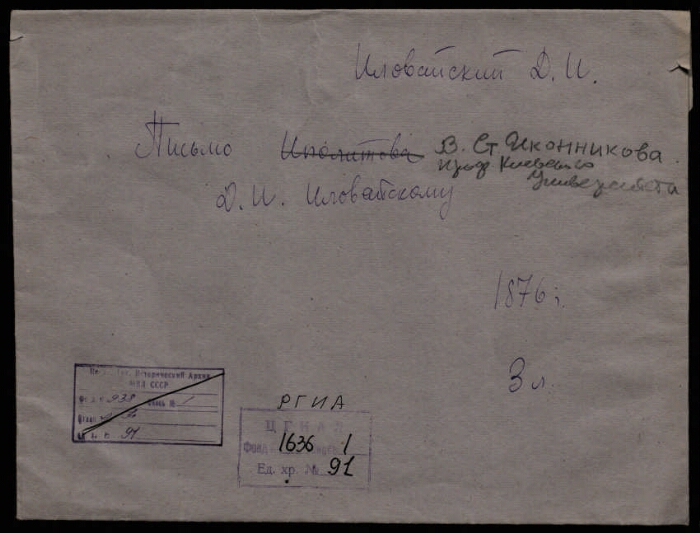 Иловайский Д. И.
Письмо Иполитова В. Ст Иконникова.
проф Киевского
Университета
Д. И. Иловайскому
1876 г.
3 л.
Исторический Архив
МВД СССР
938 опись № 1
91
РГИА
ЦГИАЛ
Фонд 1636 1
Ед. хр. № 91